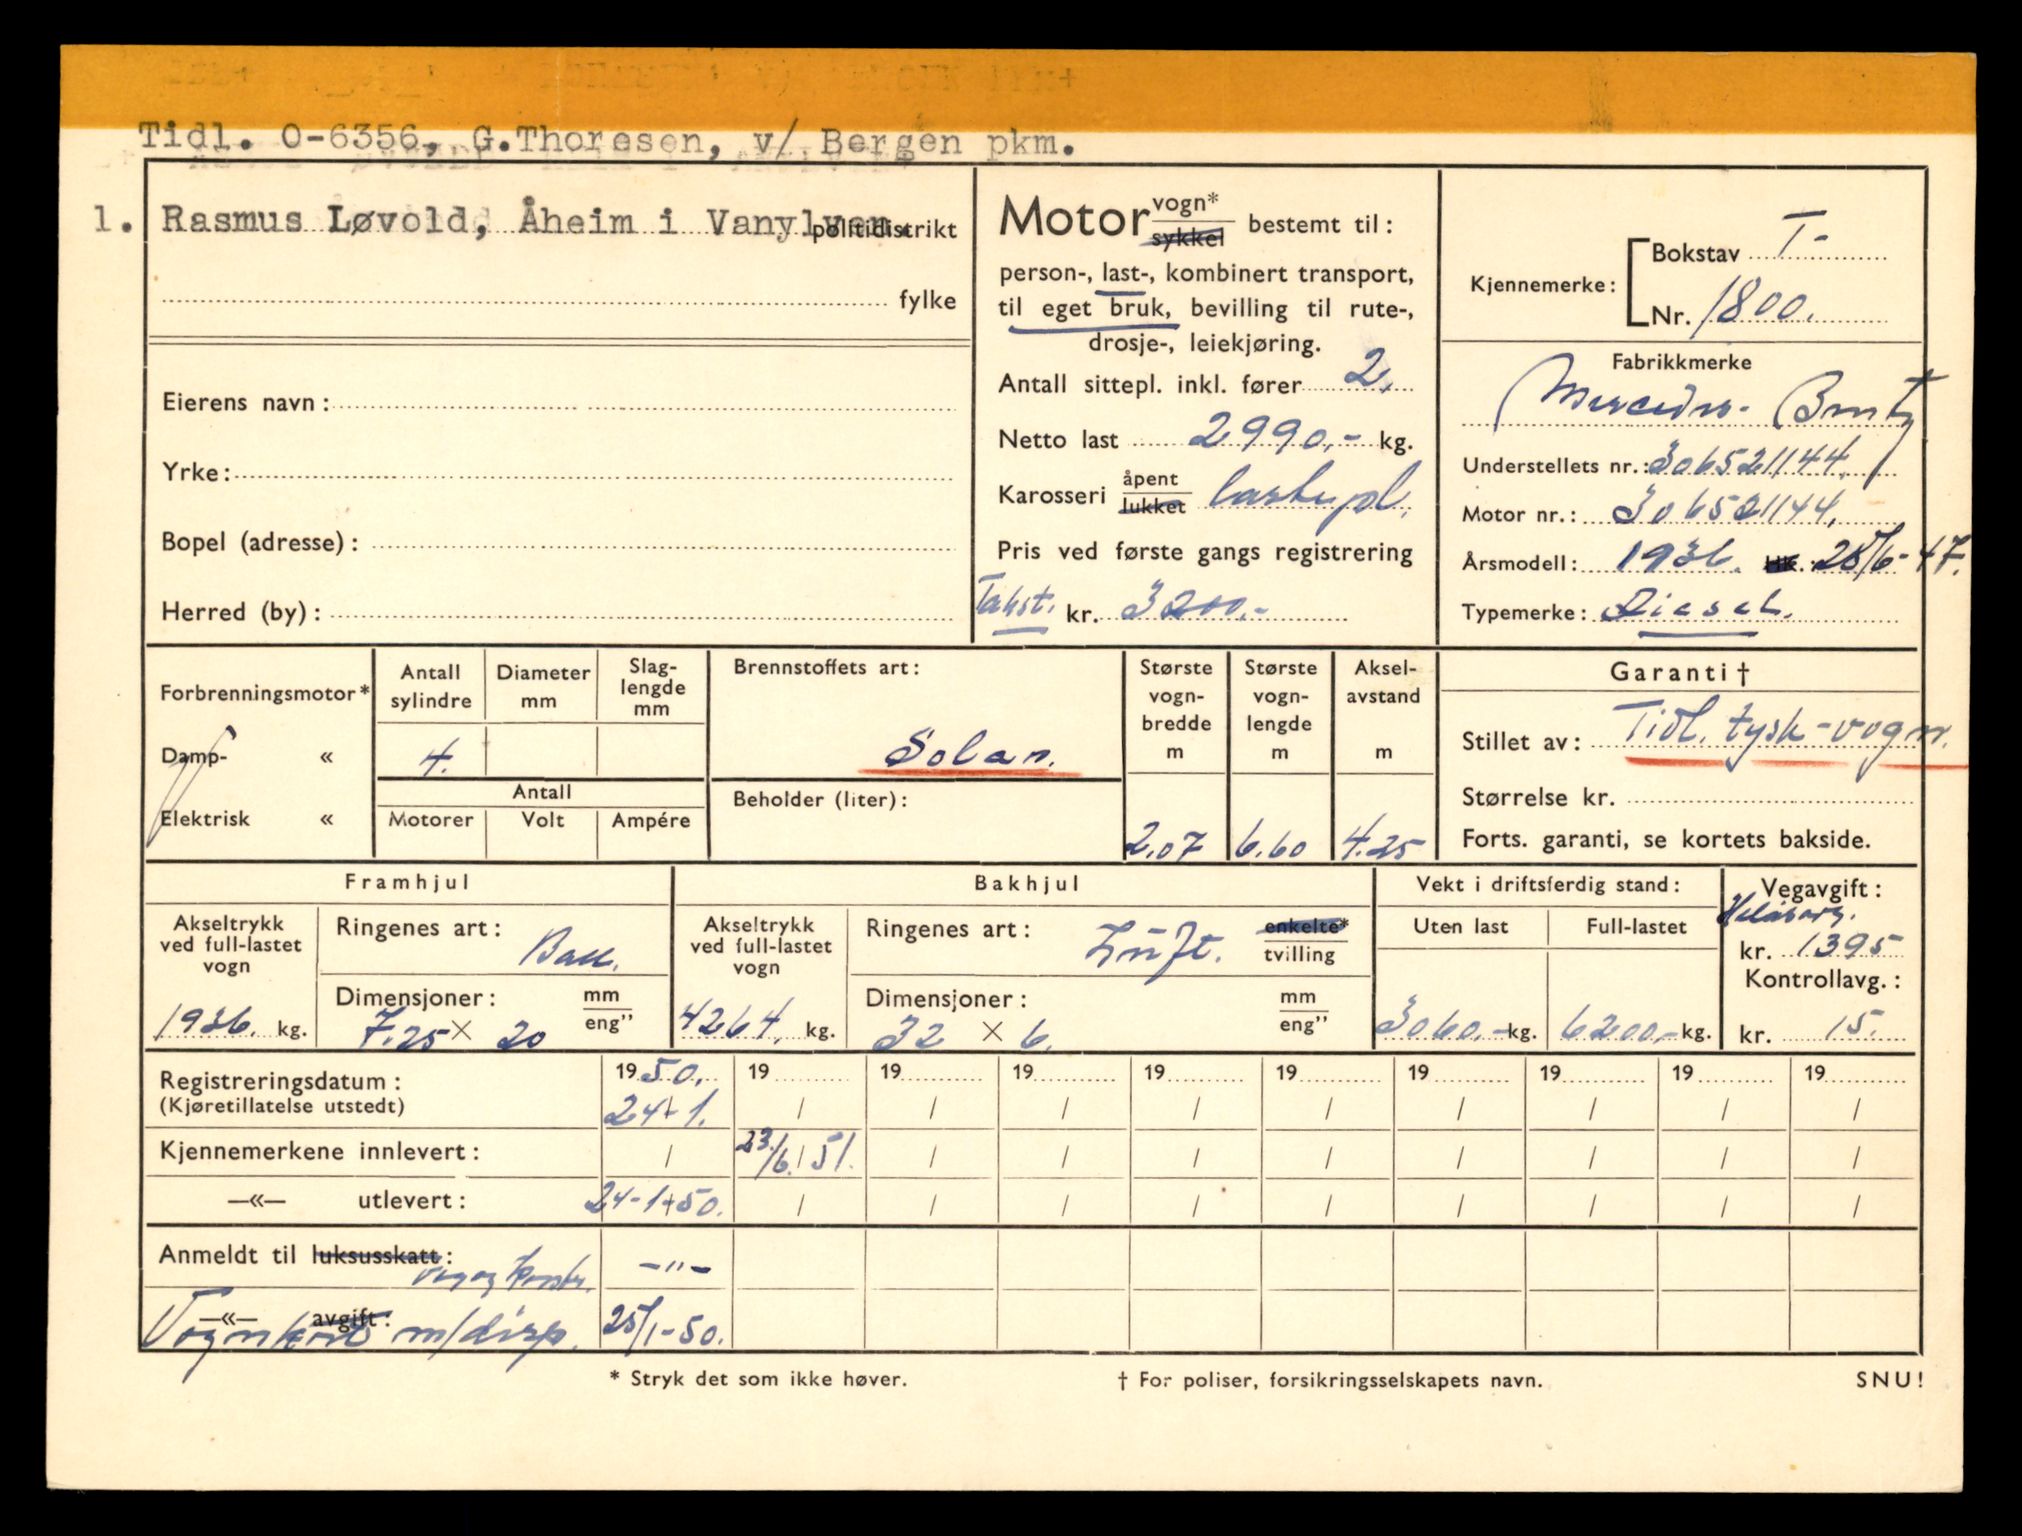 Tidl. O-6356, G.Thoresen, v/ Bergen pkm.
1. Rasmus Løvold, Åheim i Vanylven. politidistrikt
fylke
Eierens navn:
Yrke:
Bopel (adresse):
Herred (by):
Motor vogn* sykkel bestemt til:
person-, last-, kombinert transport,
til eget bruk, bevilling til rute-,
drosje-, leiekjøring.
Antall sittepl. inkl. fører 2.
Netto last 2990,- kg.
Karosseri åpent lukket lastepl.
Pris ved første gangs registrering
Takst. kr. 3200,-
Kjennemerke: Bokstav T-
Nr. 1800.
Fabrikkmerke
Mercedes-Benz
Understellets nr.: 306521144.
Motor nr.: 306521144.
Årsmodell: 1936. HK. 25/6-47.
Typemerke: Diesel.
Forbrenningsmotor*
Damp- «
Elektrisk «
Antall sylindre
4.
Diameter mm
Slag-lengde mm
Antall
Motorer Volt Ampére
Brennstoffets art:
Solar.
Beholder (liter):
Største vogn-bredde m
2.07
Største vogn-lengde m
6.60
Aksel-avstand m
4.25
Garanti †
Stillet av: Tidl. tysk-vogn.
Størrelse kr.
Forts. garanti, se kortets bakside.
Framhjul
Akseltrykk ved full-lastet vogn
1936. kg.
Ringenes art: Ball.
Dimensjoner: mm eng”
7.25 × 20
Bakhjul
Akseltrykk ved full-lastet vogn
4264. kg.
Ringenes art: Luft. enkelte* tvilling
Dimensjoner: mm eng”
32 × 6.
Vekt i driftsferdig stand:
Uten last Full-lastet
3060.- kg. 6200,- kg.
Vegavgift:
Helårsavg.
kr. 1395
Kontrollavg.:
kr. 15.
Registreringsdatum: 1950. 19 19 19 19 19 19 19 19 19
(Kjøretillatelse utstedt) 24-1. / / / / / / / / /
Kjennemerkene innlevert: / 23/6.51. / / / / / / / /
—«— utlevert: 24-1-50. / / / / / / / / /
Anmeldt til luksusskatt: -"-
—«— avgift:
Vognkort m/disp. 25/1-50.
* Stryk det som ikke høver. † For poliser, forsikringsselskapets navn. SNU!